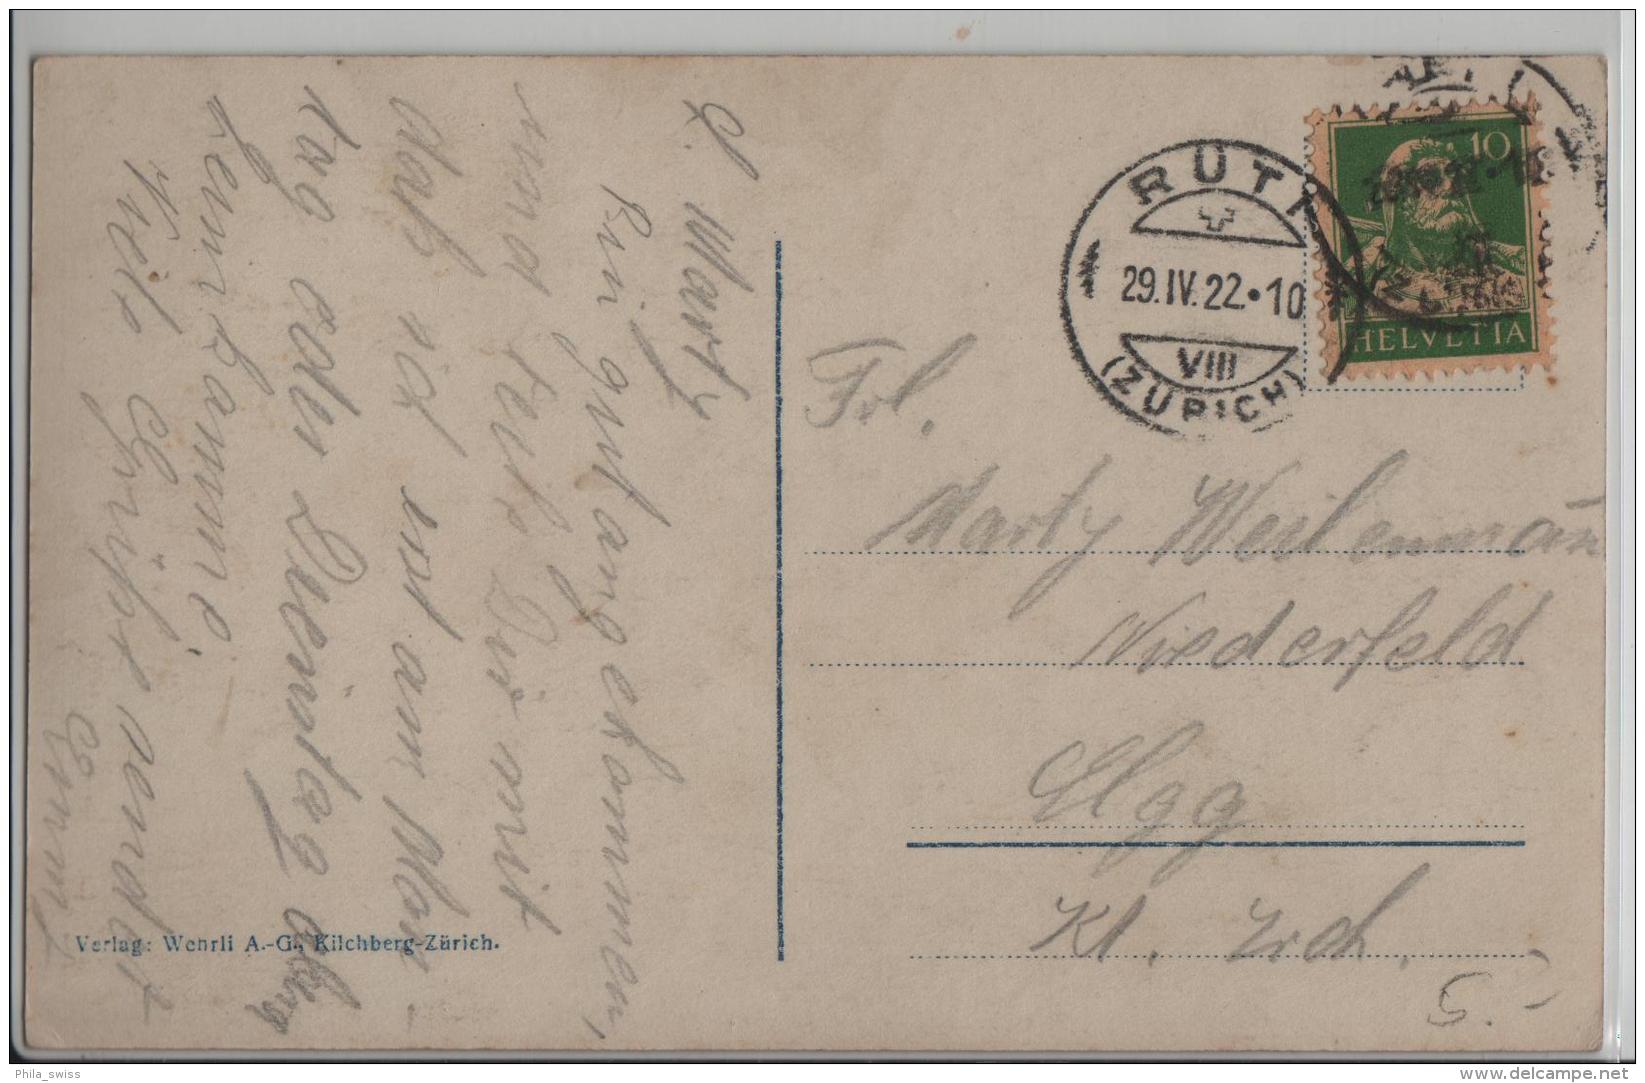 L. Marty
Bin gut angekommen,
und teile Dir mit
daß ich erst am Mon-
tag oder Dienstag
heimkomme.
Viele Grüße sendet
Frl.
Marty Weilenmann
Niederfeld
Elgg
Kt. Zrch.
5.-
RÜTI
29.IV.22.10
VIII
(ZÜRICH)
10
HELVETIA
Verlag: Wehrli A.-G., Kilchberg-Zürich.
Phila_swiss
www.delcampe.net